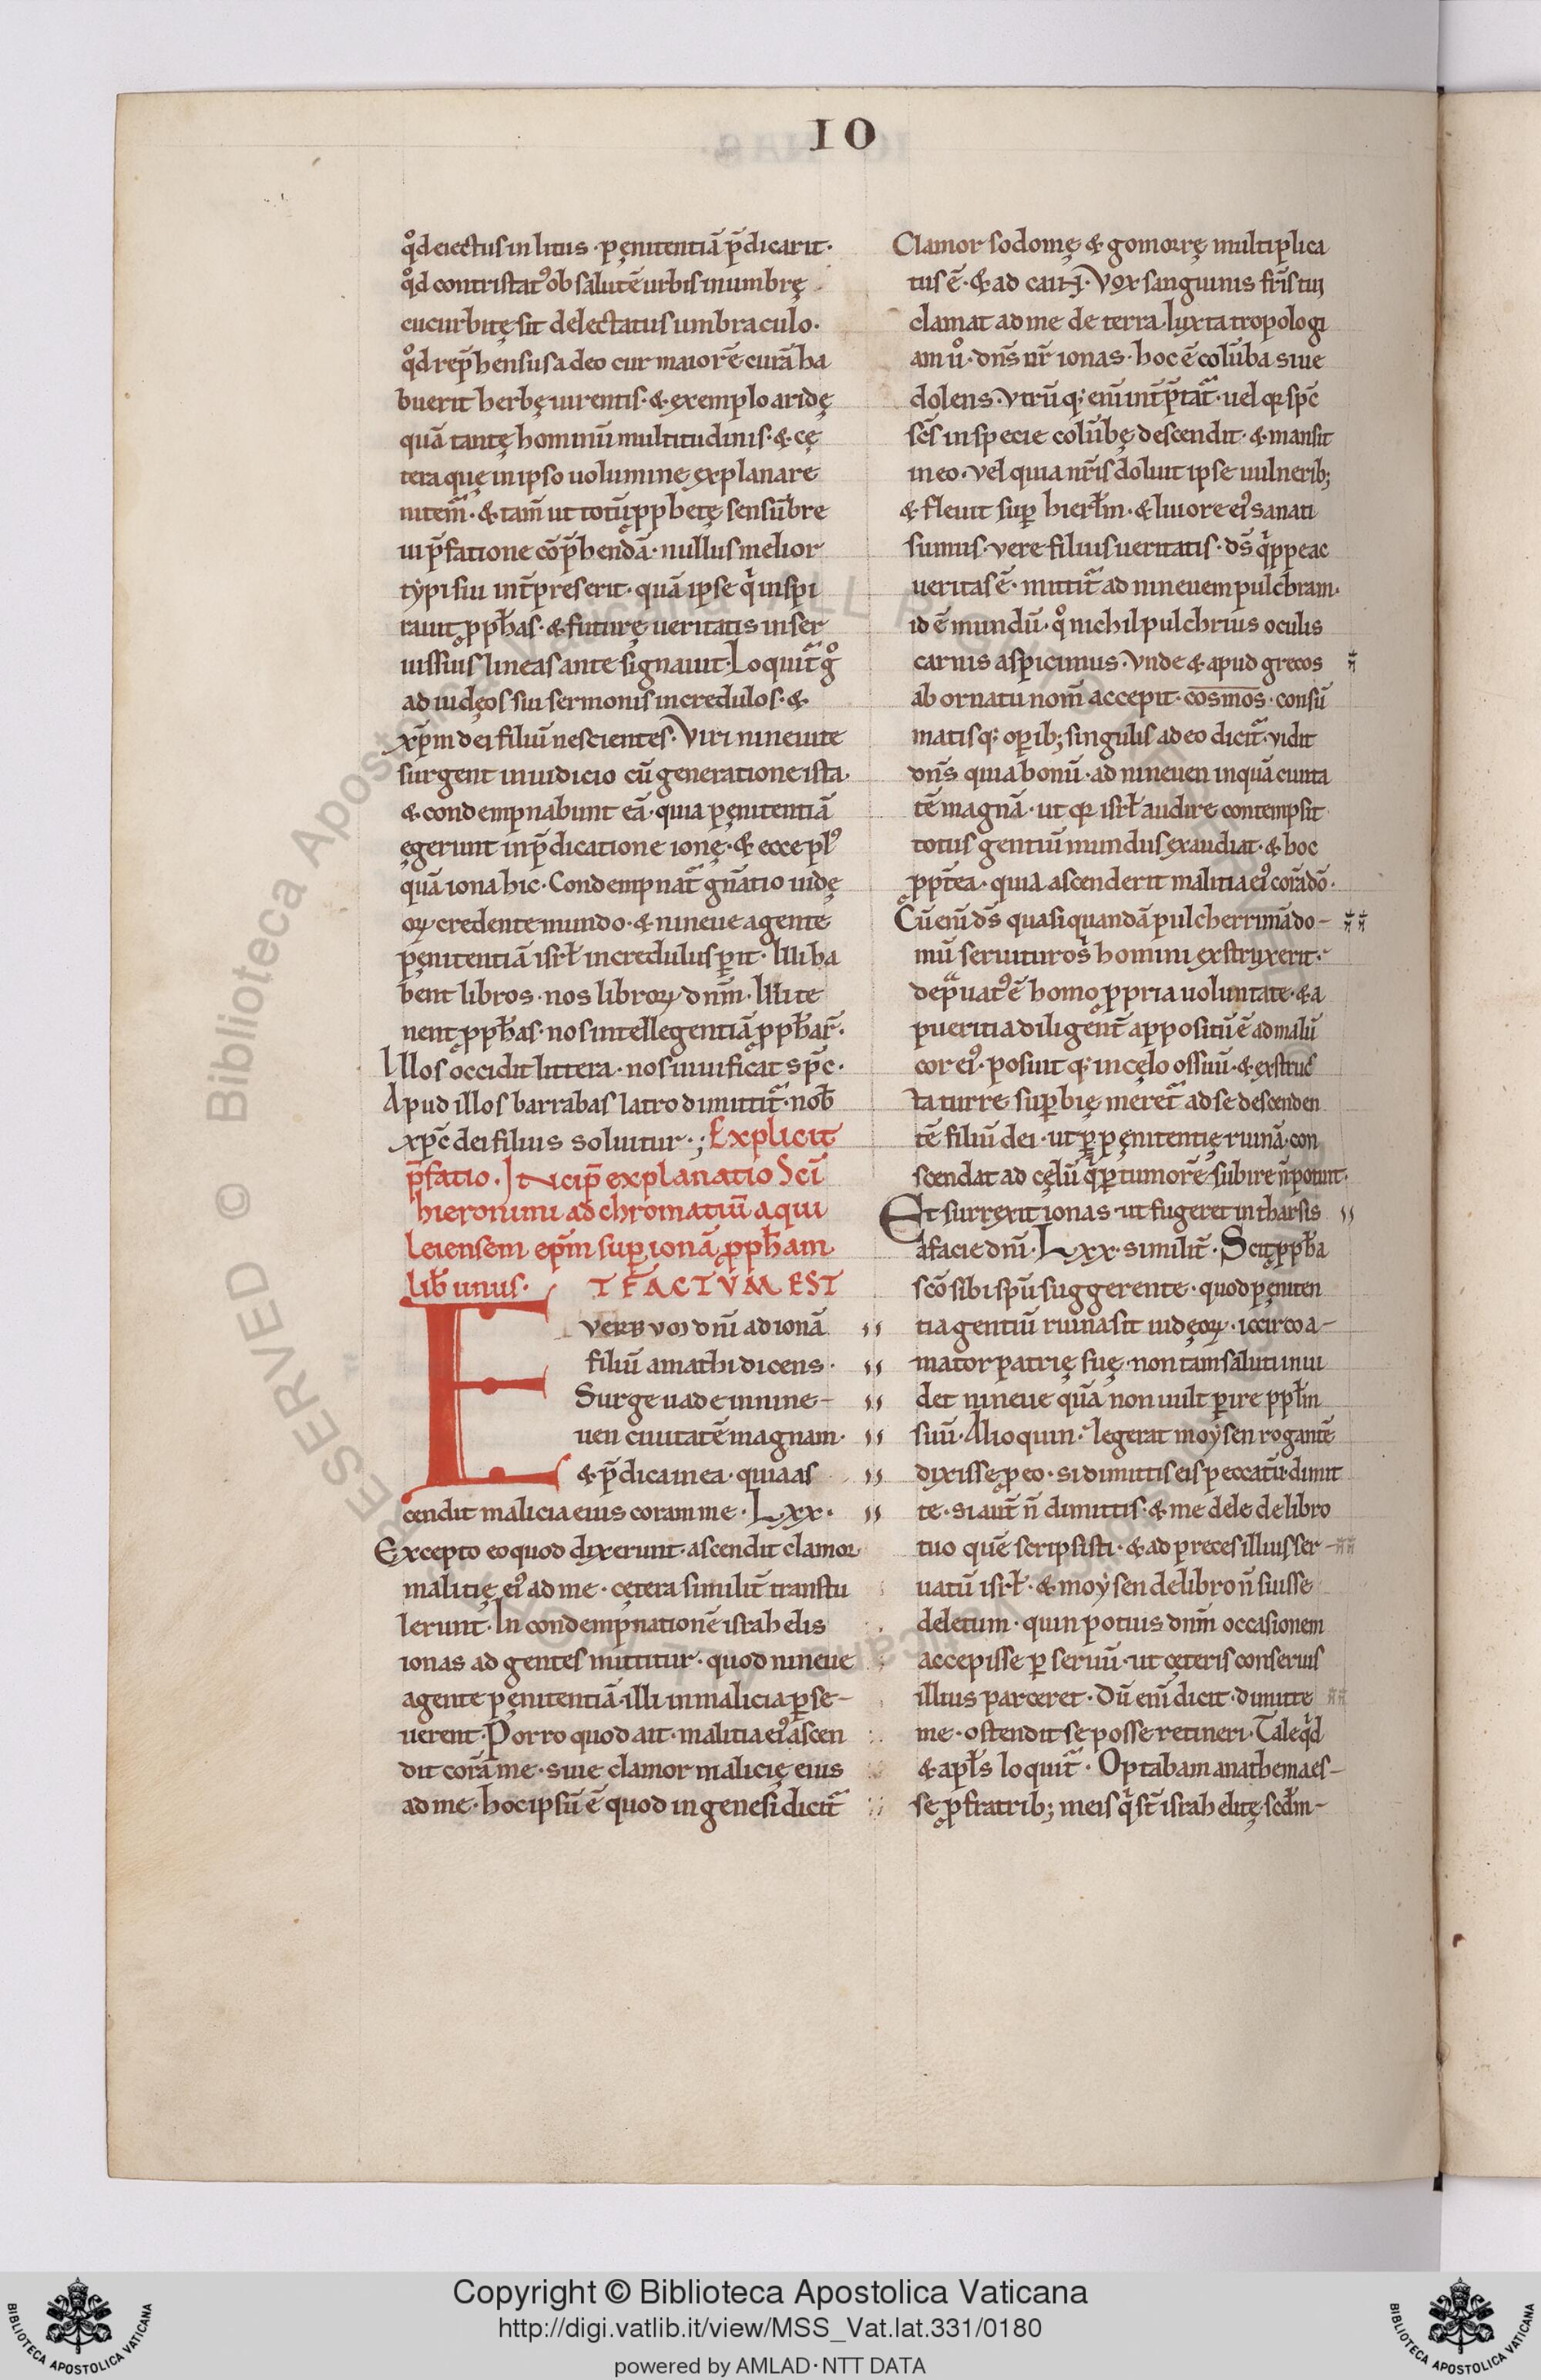 IO
qd̊ eiectus in litus · pęnitentiā p̄dicarit ·
qd̊ contristatꝰ ob salutē urbis in umbrę
cucurbitę sit delectatus umbraculo ·
qd̊ rep̄hensus a deo cur maiorē curā ha
buerit herbę uirentis · & exemplo aridę
quā tantę hominū multitudinis · & cę
tera quę in ipso uolumine explanare
nitem̄ · & tam̄ ut totū ꝓphetę sensū bre
ui p̄fatione cōp̄hendā · nullus melior
typi sui int̄pres erit · quā ipse qͥ inspi
rauit ꝓph̄as · & futurę ueritatis in ser
uis suis lineas ante signauit · Loquit̄ g̊
ad iudęos sui sermonis incredulos · &
xp̄m dei filiū nescientes · Viri nineuite
surgent in iudicio cū generatione ista ·
& condempnabunt eā · quia pęnitentiā
ęgerunt in p̄dicatione ionę · & ecce plꝰ
quā iona hic · Condempnat̄ gn̄atio iudę
oꝝ credente mundo · & nineue agente
pęnitentiā isrł incredulus ꝑit · Illi ha
bent libros · nos libroꝝ dnm̄ · Illi te
nent ꝓph̄as · nos intellegentiā ꝓph̄ar̄ ·
Illos occidit littera · nos uiuificat sp̄c ·
Apud illos barrabas latro dimittit̄ · nob̄
xp̄c dei filius soluitur · ; Explicit
p̄fatio · Incip̄ explanatio Sc̄i
hieronimi ad chromatiū aqui
leiensem ep̄m suꝑ ionā ꝓph̄am
lib̄ unus · T FACTVM EST
E
VERBVM dnī ad ionā
filiū amathi dicens ·
Surge uade in nine-
uen ciuitatē magnam ·
& p̄dica in ea · quia as
cendit malicia eius coram me · Lxx ·
Excepto eo quod dixerunt · ascendit clamor
malitię eiꝰ ad me · cętera similit̄ transtu
lerunt · In condempnationē israhelis
ionas ad gentes mittitur · quod nineue
agente pęnitentiā · illi in malicia ꝑse-
uerent · Porro quod ait · malitia eiꝰ ascen
dit corā me · siue clamor malicię eius
ad me · hoc ipsū ē quod in genesi dicit̄
Clamor sodomę & gomorrę multiplica
tus ē · & ad cain · Vox sanguinis fr̄is tui
clamat ad me de terra · Iuxta tropologi
am ů · dn̄s nr̄ ionas · hoc ē colūba siue
dolens · Vtrūq; enī int̄p̄tat̄ · uel qꝛ sp̄c
sc̄s in specie colūbę descendit · & mansit
in eo · Vel quia nr̄is doluit ipse uulnerib;
& fleuit suꝑ hierłm · & liuore eiꝰ sanati
sumus · vere filius ueritatis · ds̄ qͥppe ac
ueritas ē · mittit̄ ad nineuem pulchram ·
id ē mundū · q̊ nichil pulchrius oculis
carnis aspicimus · Vnde & apud grecos
ab ornatu nom̄ accepit · cosmos · consū
matisq; oꝑib; singulis a deo dicit̄ · vidit
dn̄s quia bonū · ad nineuen inquā ciuita
tē magnā · ut qꝛ isrł audire contempsit
totus gentiū mundus exaudiat · & hoc
ꝓpt̄ea · quia ascenderit malitia eiꝰ corā dō ·
Cū enī ds̄ quasi quandā pulcherrimā do-
mū seruituros homini exstruxerit ·
dep̄uatꝰ ē homo ꝓpria uoluntate · & a
pueritia diligent̄ appositū ē ad malū
cor eiꝰ · posuitq; in cęlo os suū · & exstruc
ta turre suꝑbię meret̄ ad se descenden
tē filiū dei · ut ꝑ pęnitentię ruinā · con
scendat ad cęlū qͥ ꝑ tumorē subire n̄ potuit ·
Et surrexit ionas · ut fugeret in tharsis
a facie dnī · Lxx · similit̄ · Scit ꝓph̄a
sc̄o sibi spū suggerente · quod pęniten
tia gentiū ruina sit iudęoꝝ · iccirco a-
mator patrię suę · non tam saluti inui
det nineue quā non uult ꝑire ppłm
suū · Alioquin · legerat moysen rogantē
dixisse ꝓ eo · si dimittis eis peccatū · dimit
te · si aut̄ n̄ dimittis · & me dele de libro
tuo quē scripsisti · & ad preces illius ser-
uatū isrł · & moysen de libro n̄ fuisse
deletum · quin potius dnm̄ occasionem
accepisse ꝑ seruū · ut cęteris conseruis
illius parceret · Dū enī dicit · dimitte
me · ostendit se posse retineri · Tale qd̄
& apłs loquit̄ · Optabam anathema es-
se ꝓ fratrib; meis qͥ st̄ israhelitę scd̄m-
Copyright © Biblioteca Apostolica Vaticana
http://digi.vatlib.it/view/MSS_Vat.lat.331/0180
powered by AMLAD·NTT DATA
BIBLIOTECA APOSTOLICA VATICANA
BIBLIOTECA APOSTOLICA VATICANA